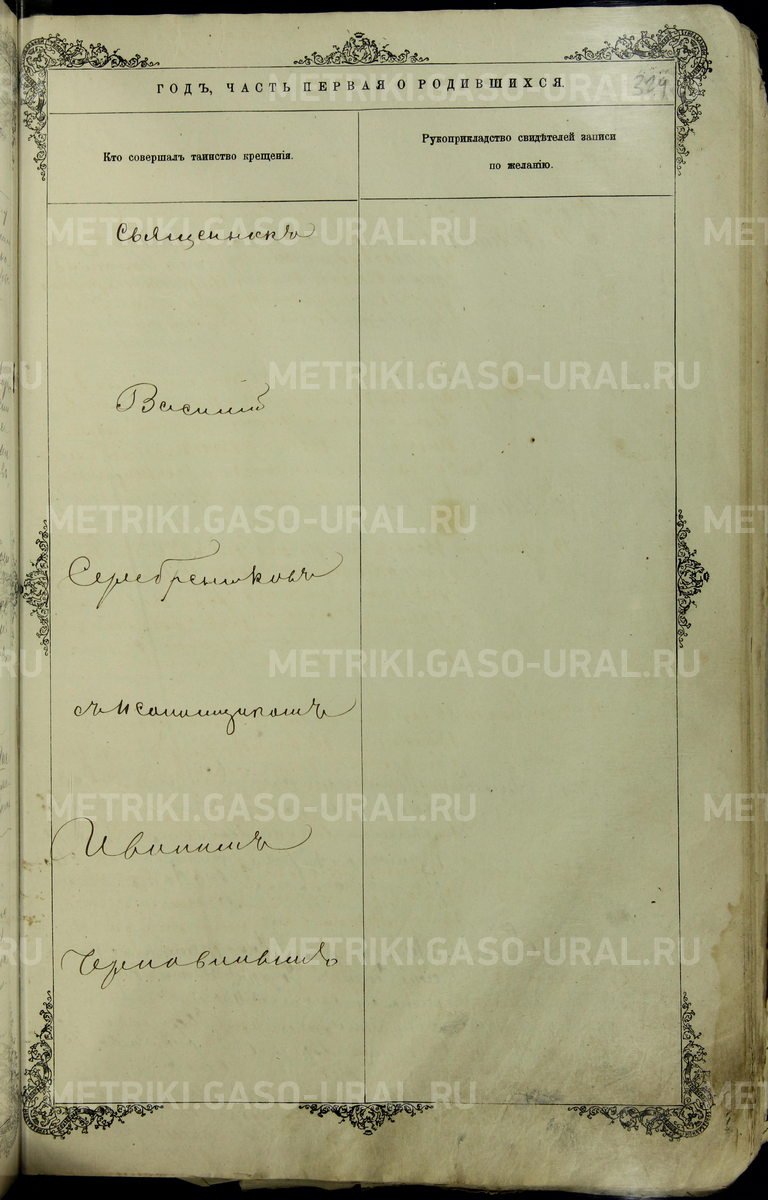 ГОДЪ, ЧАСТЬ ПЕРВАЯ О РОДИВШИХСЯ.
Кто совершалъ таинство крещенія.
Рукоприкладство свидѣтелей записи
по желанію.
Священникъ
Василій
Серебрениковъ
съ Псаломщикомъ
Иваномъ
METRIKI.GASO-URAL.RU